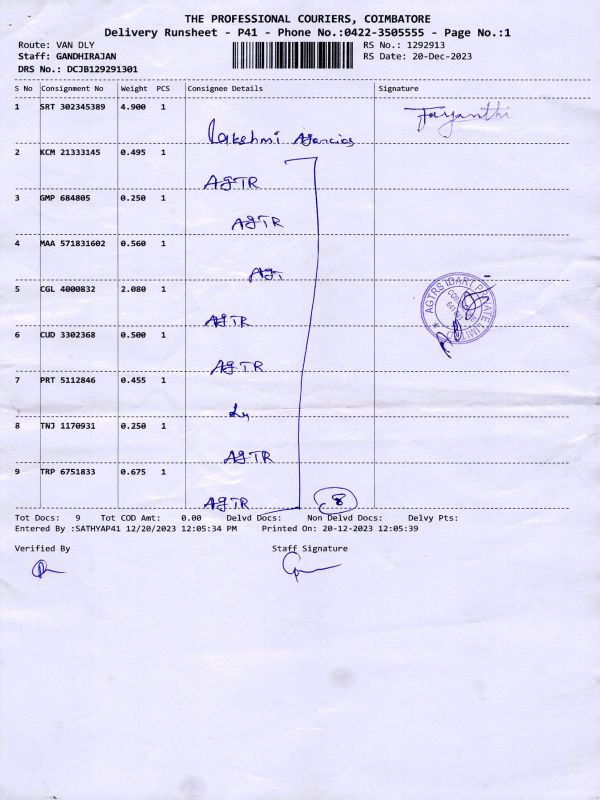 THE PROFESSIONAL COURIERS, COIMBATORE
Delivery Runsheet - P41 - Phone No.:0422-3505555 - Page No.:1
Route: VAN DLY RS No.: 1292913
Staff: GANDHIRAJAN RS Date: 20-Dec-2023
DRS No.: DCJB129291301
S No Consignment No Weight PCS Consignee Details Signature
1 SRT 302345389 4.900 1
Lakshmi Agencies Jayanthi
2 KCM 21333145 0.495 1
AGTR
3 GMP 684805 0.250 1
AGTR
4 MAA 571831602 0.560 1
AGT
5 CGL 4000832 2.080 1
AGTR
AGTRS IBART PRIVATE LIMITED
6 CUD 3302368 0.500 1
AGTR
7 PRT 5112846 0.455 1
8 TNJ 1170931 0.250 1
AGTR
9 TRP 6751833 0.675 1
AGTR 8
Tot Docs: 9 Tot COD Amt: 0.00 Delvd Docs: Non Delvd Docs: Delvy Pts:
Entered By :SATHYAP41 12/20/2023 12:05:34 PM Printed On: 20-12-2023 12:05:39
Verified By Staff Signature